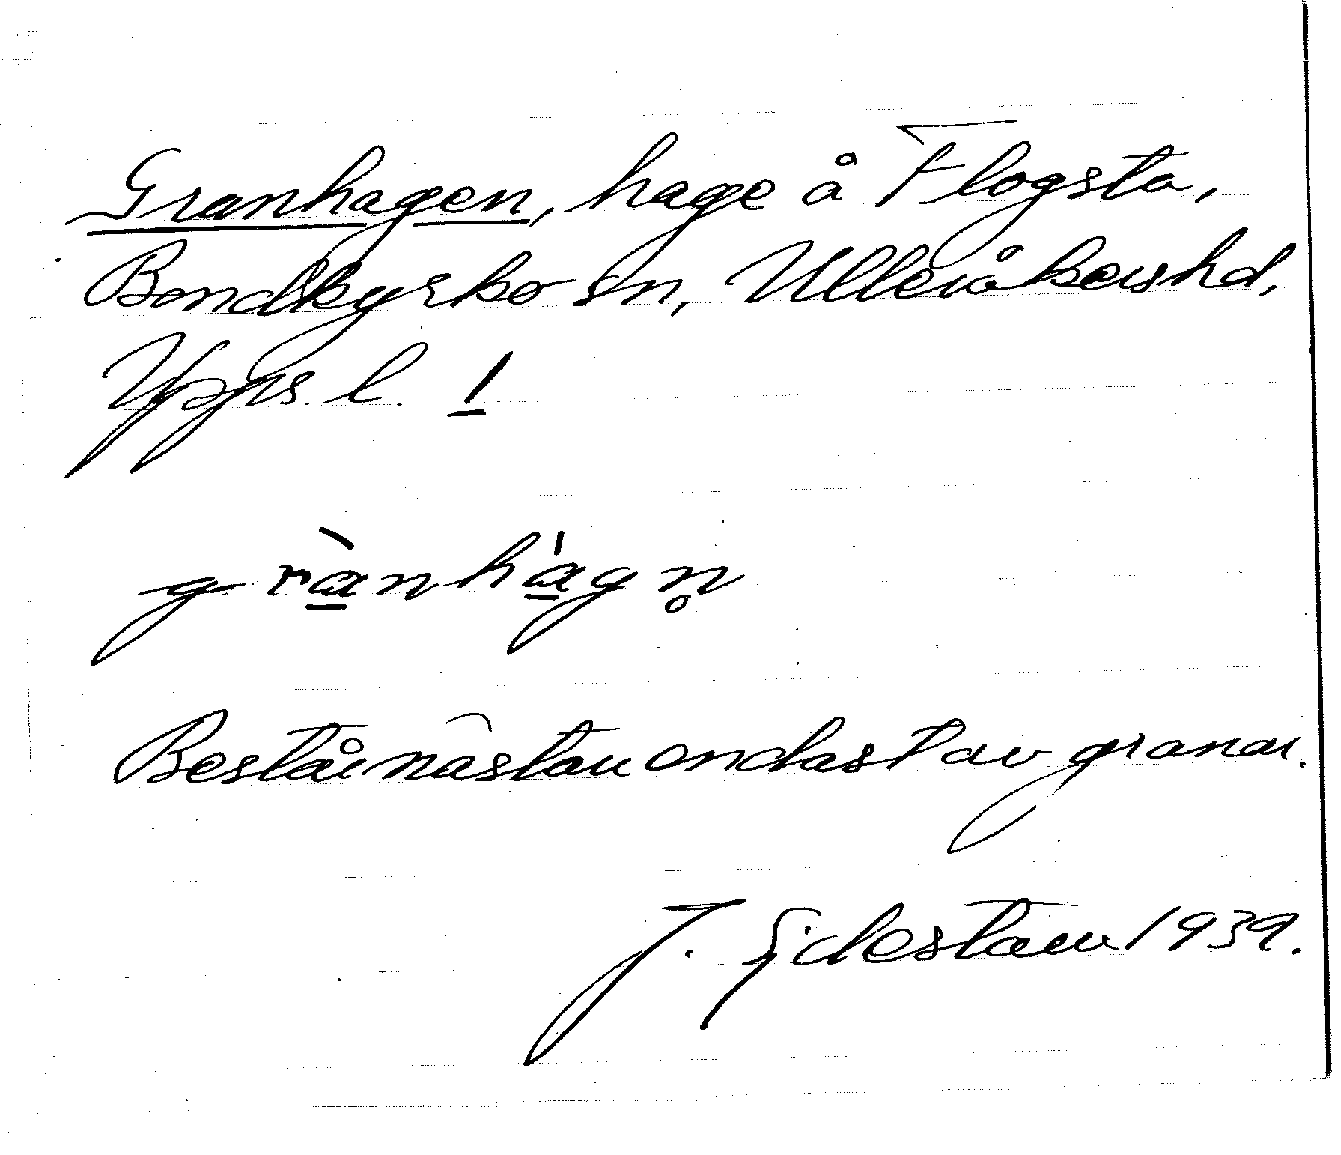 Granhagen, hage å Flogsta,
Bondkyrko sn, Ulleråkers hd,
Upps. l. 1
grànhágn̥
Består nästan endast av granar.
J. Sidestam 1939.